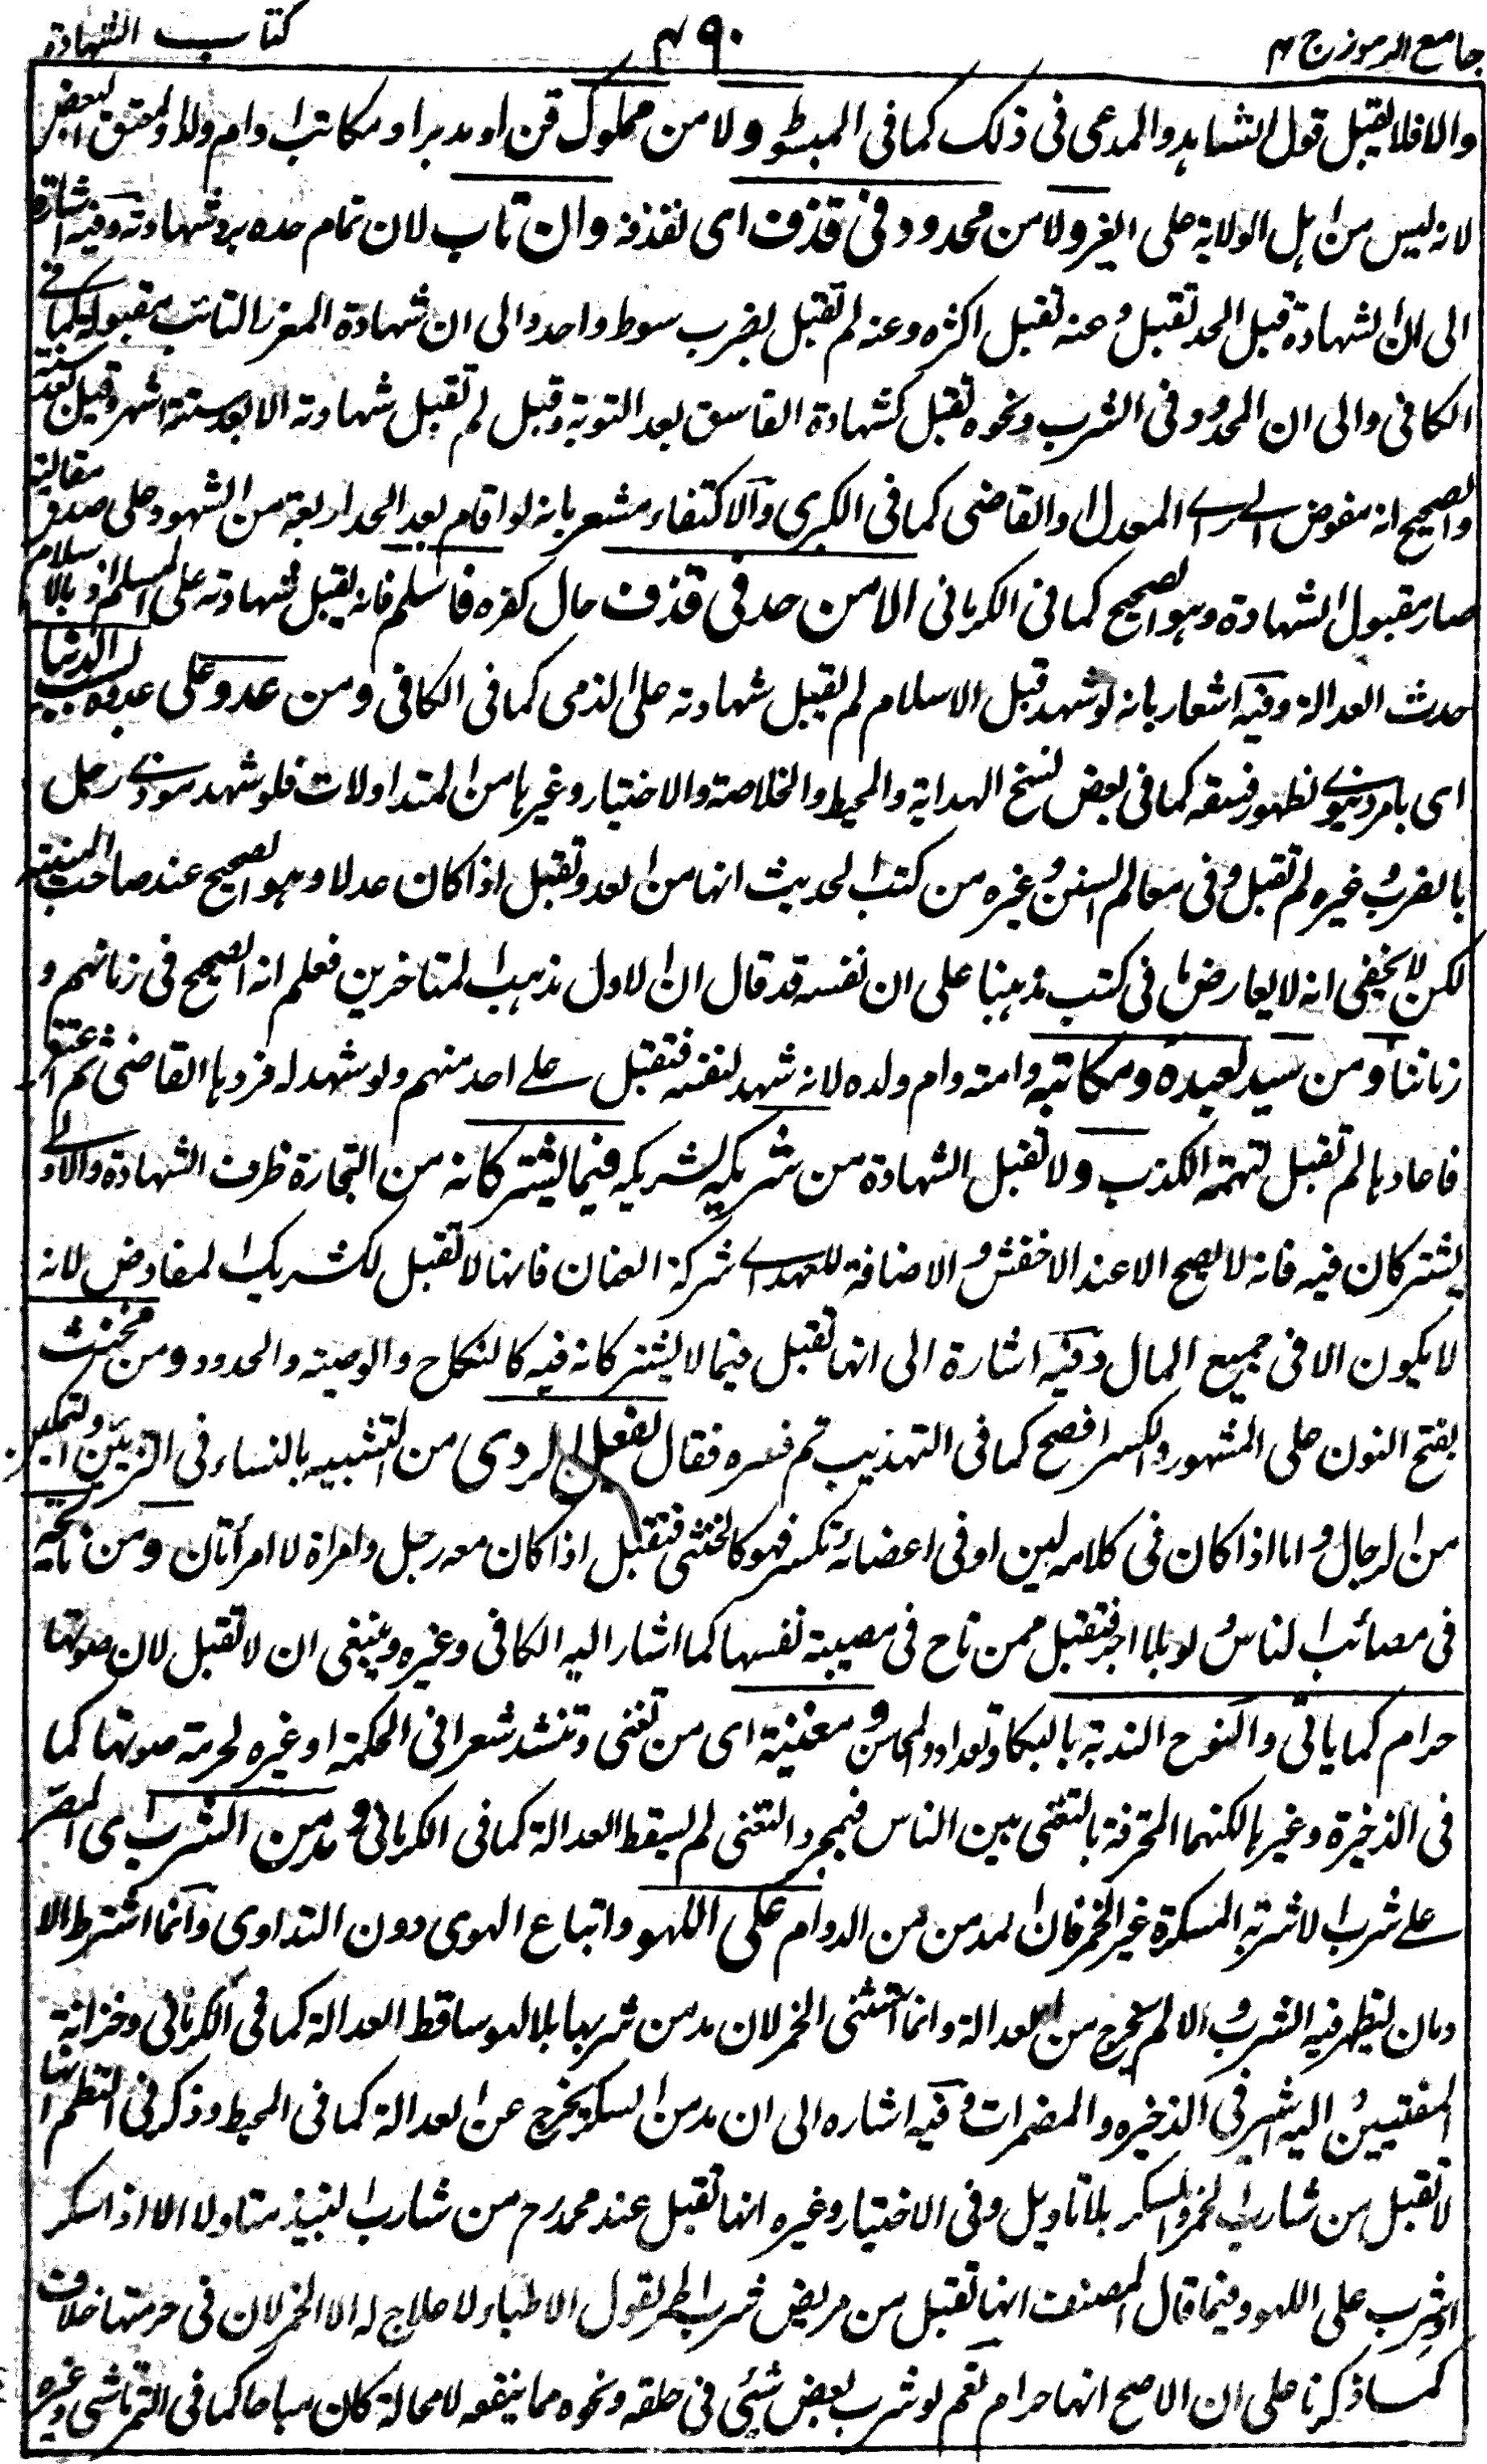 جامع الرموز ج ۲ ۴۹۰ كتاب الشهادة
والا فلا يقبل قول الشاهد والمدعى فى ذلك كما فى المبسوط ولا من مملوك قن او مدبر او مكاتب او ام ولد او معتق البعض
لانه ليس من اهل الولاية على الغير ولا من محدود فى قذف اى لقذفه وان تاب لان تمام حده برد شهادته وفيه اشارة
الى ان الشهادة قبل الحد تقبل وعنه تقبل اكثره وعنه لم تقبل بضرب سوط واحد والى ان شهادة المعزر التائب مقبولة كما فى
الكافى والى ان المحدود فى الشرب ونحوه تقبل كشهادة الفاسق بعد التوبة وقيل لم تقبل شهادته الا بعد ستة اشهر وقيل بعد سنة
والصحيح انه مفوض الى راى المعدل والقاضى كما فى الكبرى والاكتفاء مشعر بانه لو اقام بعد الحد اربعة من الشهود على صدق مقالته
صار مقبول الشهادة وهو الصحيح كما فى الكرمانى الا من حد فى قذف حال كفره فاسلم فانه يقبل شهادته على المسلم اذ بالاسلام
حدث العدالة وفيه اشعار بانه لو شهد قبل الاسلام لم يقبل شهادته على الذمى كما فى الكافى ومن عدو على عدوه بسبب الدنيا
اى بامر دنيوى لظهور فسقه كما فى بعض نسخ الهداية والمحيط والخلاصة والاختيار وغيرها من المتداولات فلو شهد موذى رجل
بالضرب وغيره لم تقبل وفى معالم السنن وغيره من كتب الحديث انها من العدو تقبل اذا كان عدلا وهو الصحيح عند صاحب المنية
لكن لا يخفى انه لا يعارض ما فى كتب مذهبنا على ان نفسه قد قال ان الاول مذهب المتاخرين فعلم انه الصحيح فى زمانهم و
زماننا ومن سيد لعبده ومكاتبه وامته وام ولده لانه شهد لنفسه فتقبل على احد منهم ولو شهد له فردها القاضى ثم اعتق
فاعادها لم تقبل لتهمة الكذب ولا تقبل الشهادة من شريكه لشريكه فيما يشتركانه من التجارة ظرف الشهادة والاولى
يشتركان فيه فانه لا يصح الا عند الاخفش والاضافة للعهد اى شركة العنان فانها لا تقبل لشريك المفاوض لانه
لا يكون الا فى جميع المال وفيه اشارة الى انها تقبل فيما لا يشتركانه فيه كالنكاح والوصية والحدود ومن مخنث
بفتح النون على المشهور والكسر افصح كما فى التهذيب ثم فسره فقال لفعل الردى من التشبيه بالنساء فى التزيين والتمكين
من الرجال واما اذا كان فى كلامه لين او فى اعضائه تكسر فهو كالخنثى فتقبل اذا كان معه رجل وامراة لا امرأتان ومن نائحة
فى مصائب الناس ولو بلا اجر فتقبل ممن ناح فى مصيبة نفسها كما اشار اليه الكافى وغيره وينبغى ان لا تقبل لان صوتها
حرام كما ياتى والنوح الندبة بالبكا وتعداد المحاسن ومغنية اى من تغنى وتنشد شعرا فى الحكمة او غيره لحرمة صوتها كما
فى الذخيرة وغيرها لكنها المحترفة بالتغنى بين الناس فبمجرد التغنى لم يسقط العدالة كما فى الكرمانى ومدمن الشرب اى المصر
على شرب الاشربة المسكرة غير الخمر فان المدمن من الدوام على اللهو واتباع الهوى دون التداوى وانما اشترط الا
دمان ليظهر فيه الشرب والا لم يخرج من العدالة وانما استثنى الخمر لان مدمن شربها بلا لهو ساقط العدالة كما فى الكرمانى وخزانة
المفتيين واليه اشير فى الذخيره والمضمرات وفيه اشاره الى ان مدمن السكر يخرج عن العدالة كما فى المحيط وذكر فى النظم انها
لا تقبل من شارب الخمر والسكر بلا تاويل وفى الاختيار وغيره انها تقبل عند محمد رح من شارب النبيذ متاولا الا اذا سكر
او شرب على اللهو وفيما قال المصنف انها تقبل من مريض شرب الخمر لقول الاطباء لا علاج له الا الخمر لان فى حرمتها خلاف
كما ذكرنا على ان الاصح انها حرام نعم لو شرب لبعض شئى فى حلقه ونحوه مما ينفعه لا محالة كان مباحا كما فى التمرتاشى وغيره